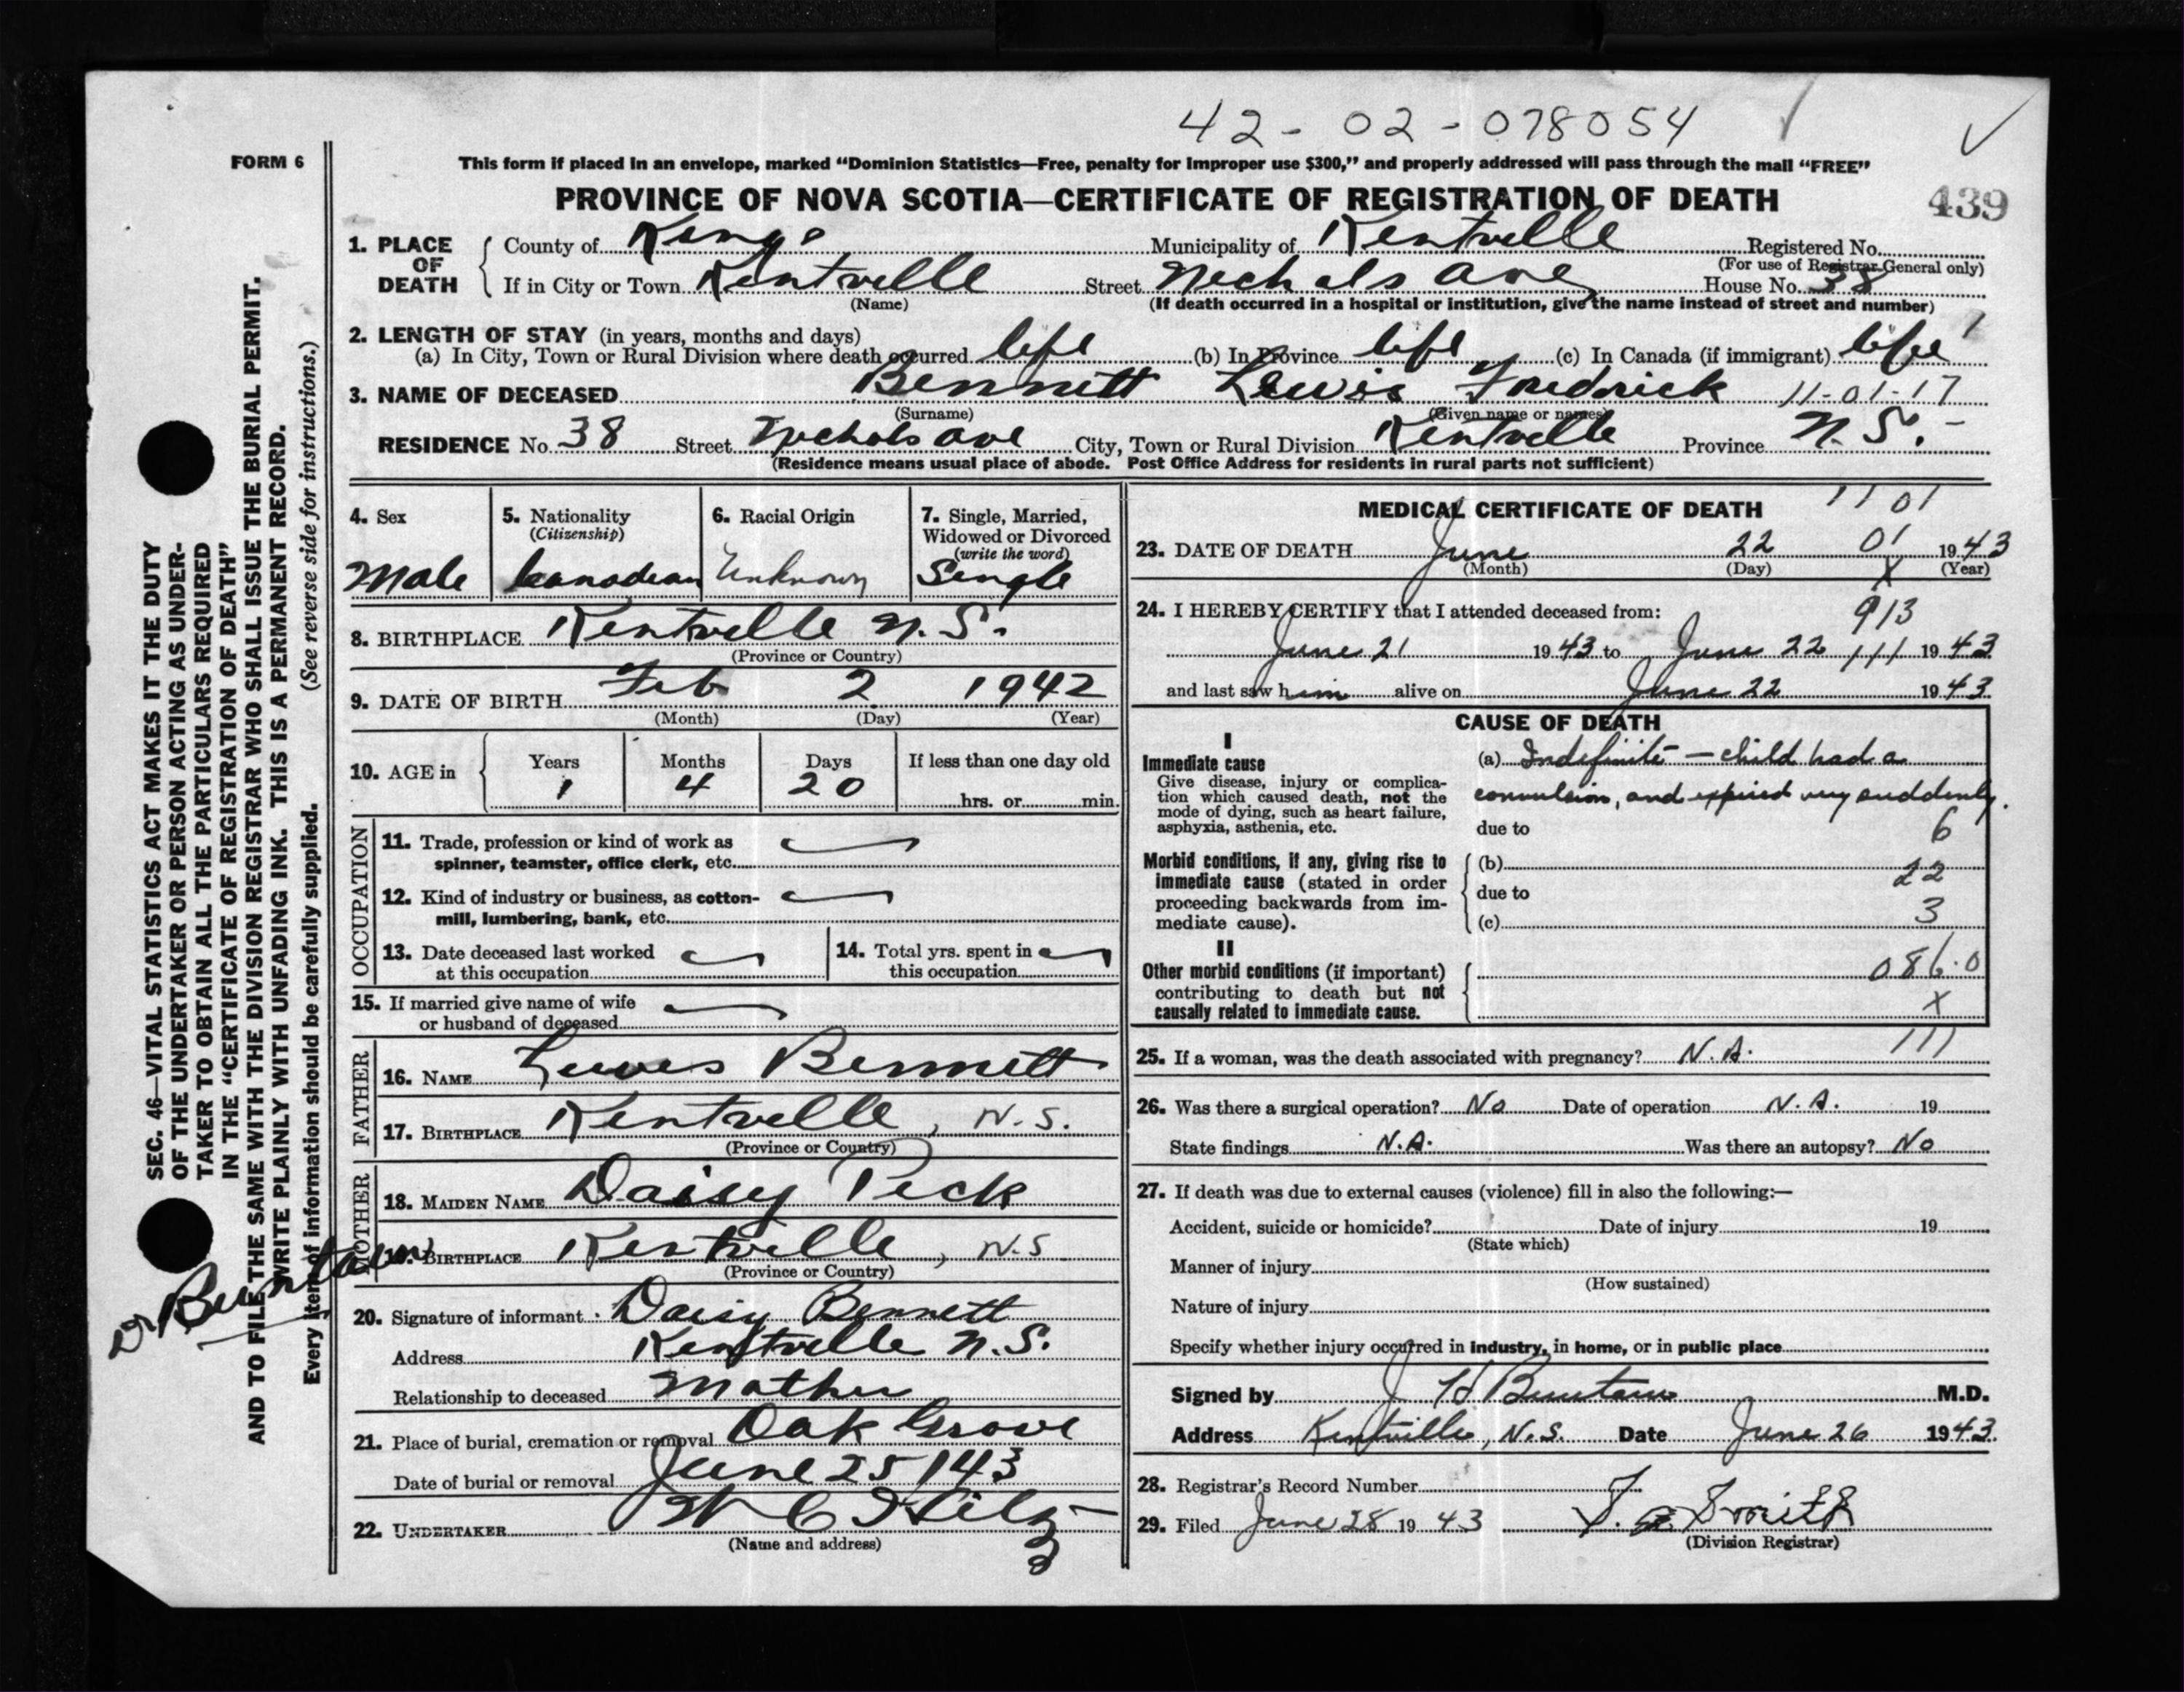 42-02-078054
FORM 6
This form if placed in an envelope, marked "Dominion Statistics—Free, penalty for improper use $300," and properly addressed will pass through the mail "FREE"
PROVINCE OF NOVA SCOTIA—CERTIFICATE OF REGISTRATION OF DEATH
439
1. PLACE OF DEATH
County of Kings Municipality of Kentville Registered No.
(For use of Registrar General only)
If in City or Town Kentville Street Nichols Ave House No. 38
(Name) (If death occurred in a hospital or institution, give the name instead of street and number)
2. LENGTH OF STAY (in years, months and days)
(a) In City, Town or Rural Division where death occurred life (b) In Province life (c) In Canada (if immigrant) life
3. NAME OF DECEASED Bennett Lewis Fredrick 11-01-17
(Surname) (Given name or names)
RESIDENCE No. 38 Street Nichols Ave City, Town or Rural Division Kentville Province N.S.
(Residence means usual place of abode. Post Office Address for residents in rural parts not sufficient)
4. Sex
Male
5. Nationality
(Citizenship)
Canadian
6. Racial Origin
Unknown
7. Single, Married,
Widowed or Divorced
(write the word)
Single
8. BIRTHPLACE Kentville N.S.
(Province or Country)
9. DATE OF BIRTH Feb 2 1942
(Month) (Day) (Year)
10. AGE in
Years Months Days If less than one day old
1 4 20 hrs. or min.
OCCUPATION
11. Trade, profession or kind of work as
spinner, teamster, office clerk, etc.
12. Kind of industry or business, as cotton-
mill, lumbering, bank, etc.
13. Date deceased last worked
at this occupation
14. Total yrs. spent in
this occupation
15. If married give name of wife
or husband of deceased
FATHER
16. NAME Lewis Bennett
17. BIRTHPLACE Kentville, N.S.
(Province or Country)
MOTHER
18. MAIDEN NAME Daisy Peck
19. BIRTHPLACE Kentville, N.S
(Province or Country)
20. Signature of informant Daisy Bennett
Address Kentville N.S.
Relationship to deceased Mother
21. Place of burial, cremation or removal Oak Grove
Date of burial or removal June 25/43
22. UNDERTAKER W C Hiltz
(Name and address)
MEDICAL CERTIFICATE OF DEATH 1101
23. DATE OF DEATH June 22 01 1943
(Month) (Day) X (Year)
24. I HEREBY CERTIFY that I attended deceased from:
913
June 21 1943 to June 22 111 1943
and last saw him alive on June 22 1943
CAUSE OF DEATH
I
Immediate cause
Give disease, injury or complica-
tion which caused death, not the
mode of dying, such as heart failure,
asphyxia, asthenia, etc.
(a) Indefinite — child had a
convulsion, and expired very suddenly.
due to 6
Morbid conditions, if any, giving rise to
immediate cause (stated in order
proceeding backwards from im-
mediate cause).
(b) 22
due to
(c) 3
II
Other morbid conditions (if important)
contributing to death but not
causally related to immediate cause.
086.0
X
25. If a woman, was the death associated with pregnancy? N.A. 111
26. Was there a surgical operation? No Date of operation N.A. 19
State findings N.A. Was there an autopsy? No
27. If death was due to external causes (violence) fill in also the following:—
Accident, suicide or homicide? Date of injury 19
(State which)
Manner of injury
(How sustained)
Nature of injury
Specify whether injury occurred in industry, in home, or in public place
Signed by J H Buntain M.D.
Address Kentville, N.S. Date June 26 1943.
28. Registrar's Record Number
29. Filed June 28 1943 Smith
(Division Registrar)
SEC. 46—VITAL STATISTICS ACT MAKES IT THE DUTY
OF THE UNDERTAKER OR PERSON ACTING AS UNDER-
TAKER TO OBTAIN ALL THE PARTICULARS REQUIRED
IN THE "CERTIFICATE OF REGISTRATION OF DEATH"
AND TO FILE THE SAME WITH THE DIVISION REGISTRAR WHO SHALL ISSUE THE BURIAL PERMIT.
WRITE PLAINLY WITH UNFADING INK. THIS IS A PERMANENT RECORD.
Every item of information should be carefully supplied. (See reverse side for instructions.)
Dr Buntain